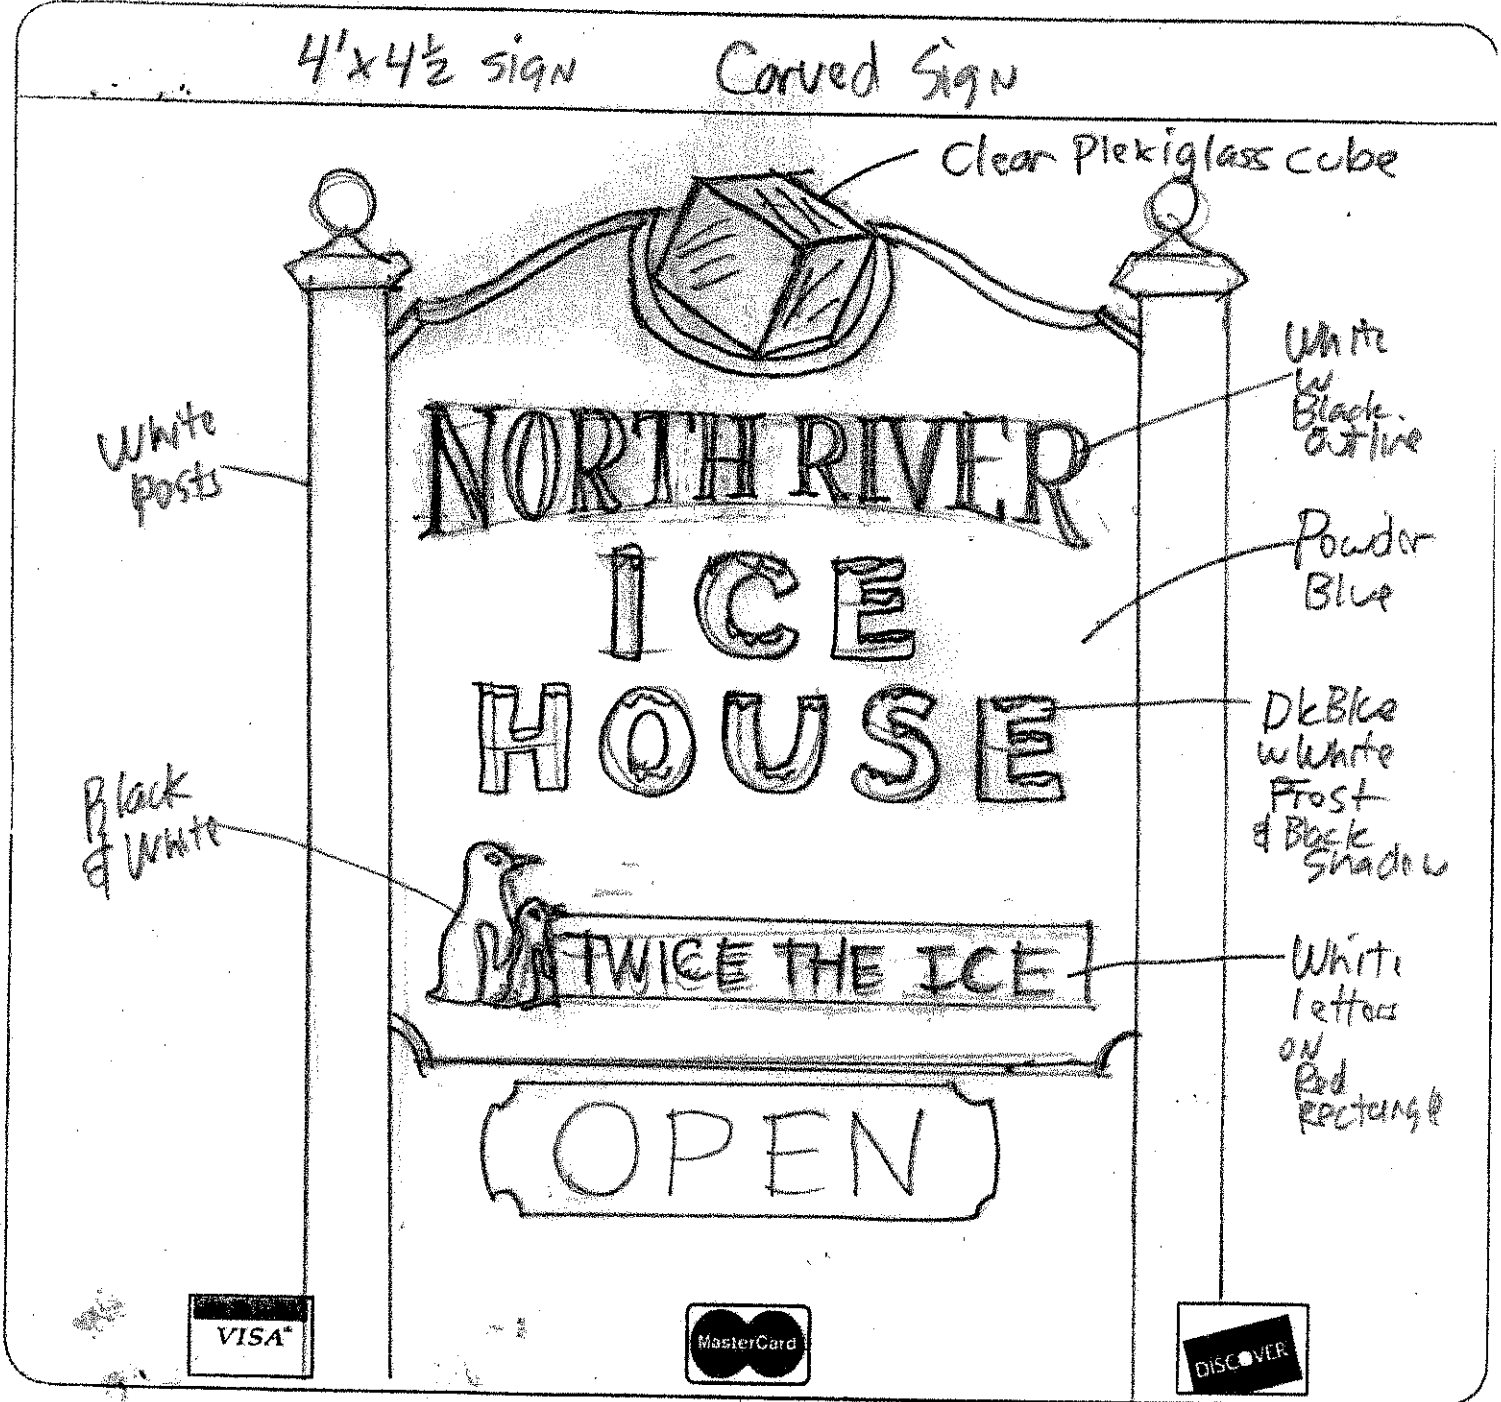 4'x4½ SigN Carved SigN
Clear Plexiglass cube
White
W
Black
Outline
White
posts
NORTH RIVER
Powder
Blue
ICE
HOUSE
Dk Blue
w White
Frost
& Black
Shadow
Black
& White
TWICE THE ICE
White
letters
ON
Red
Rectangle
OPEN
VISA
MasterCard
DISCOVER